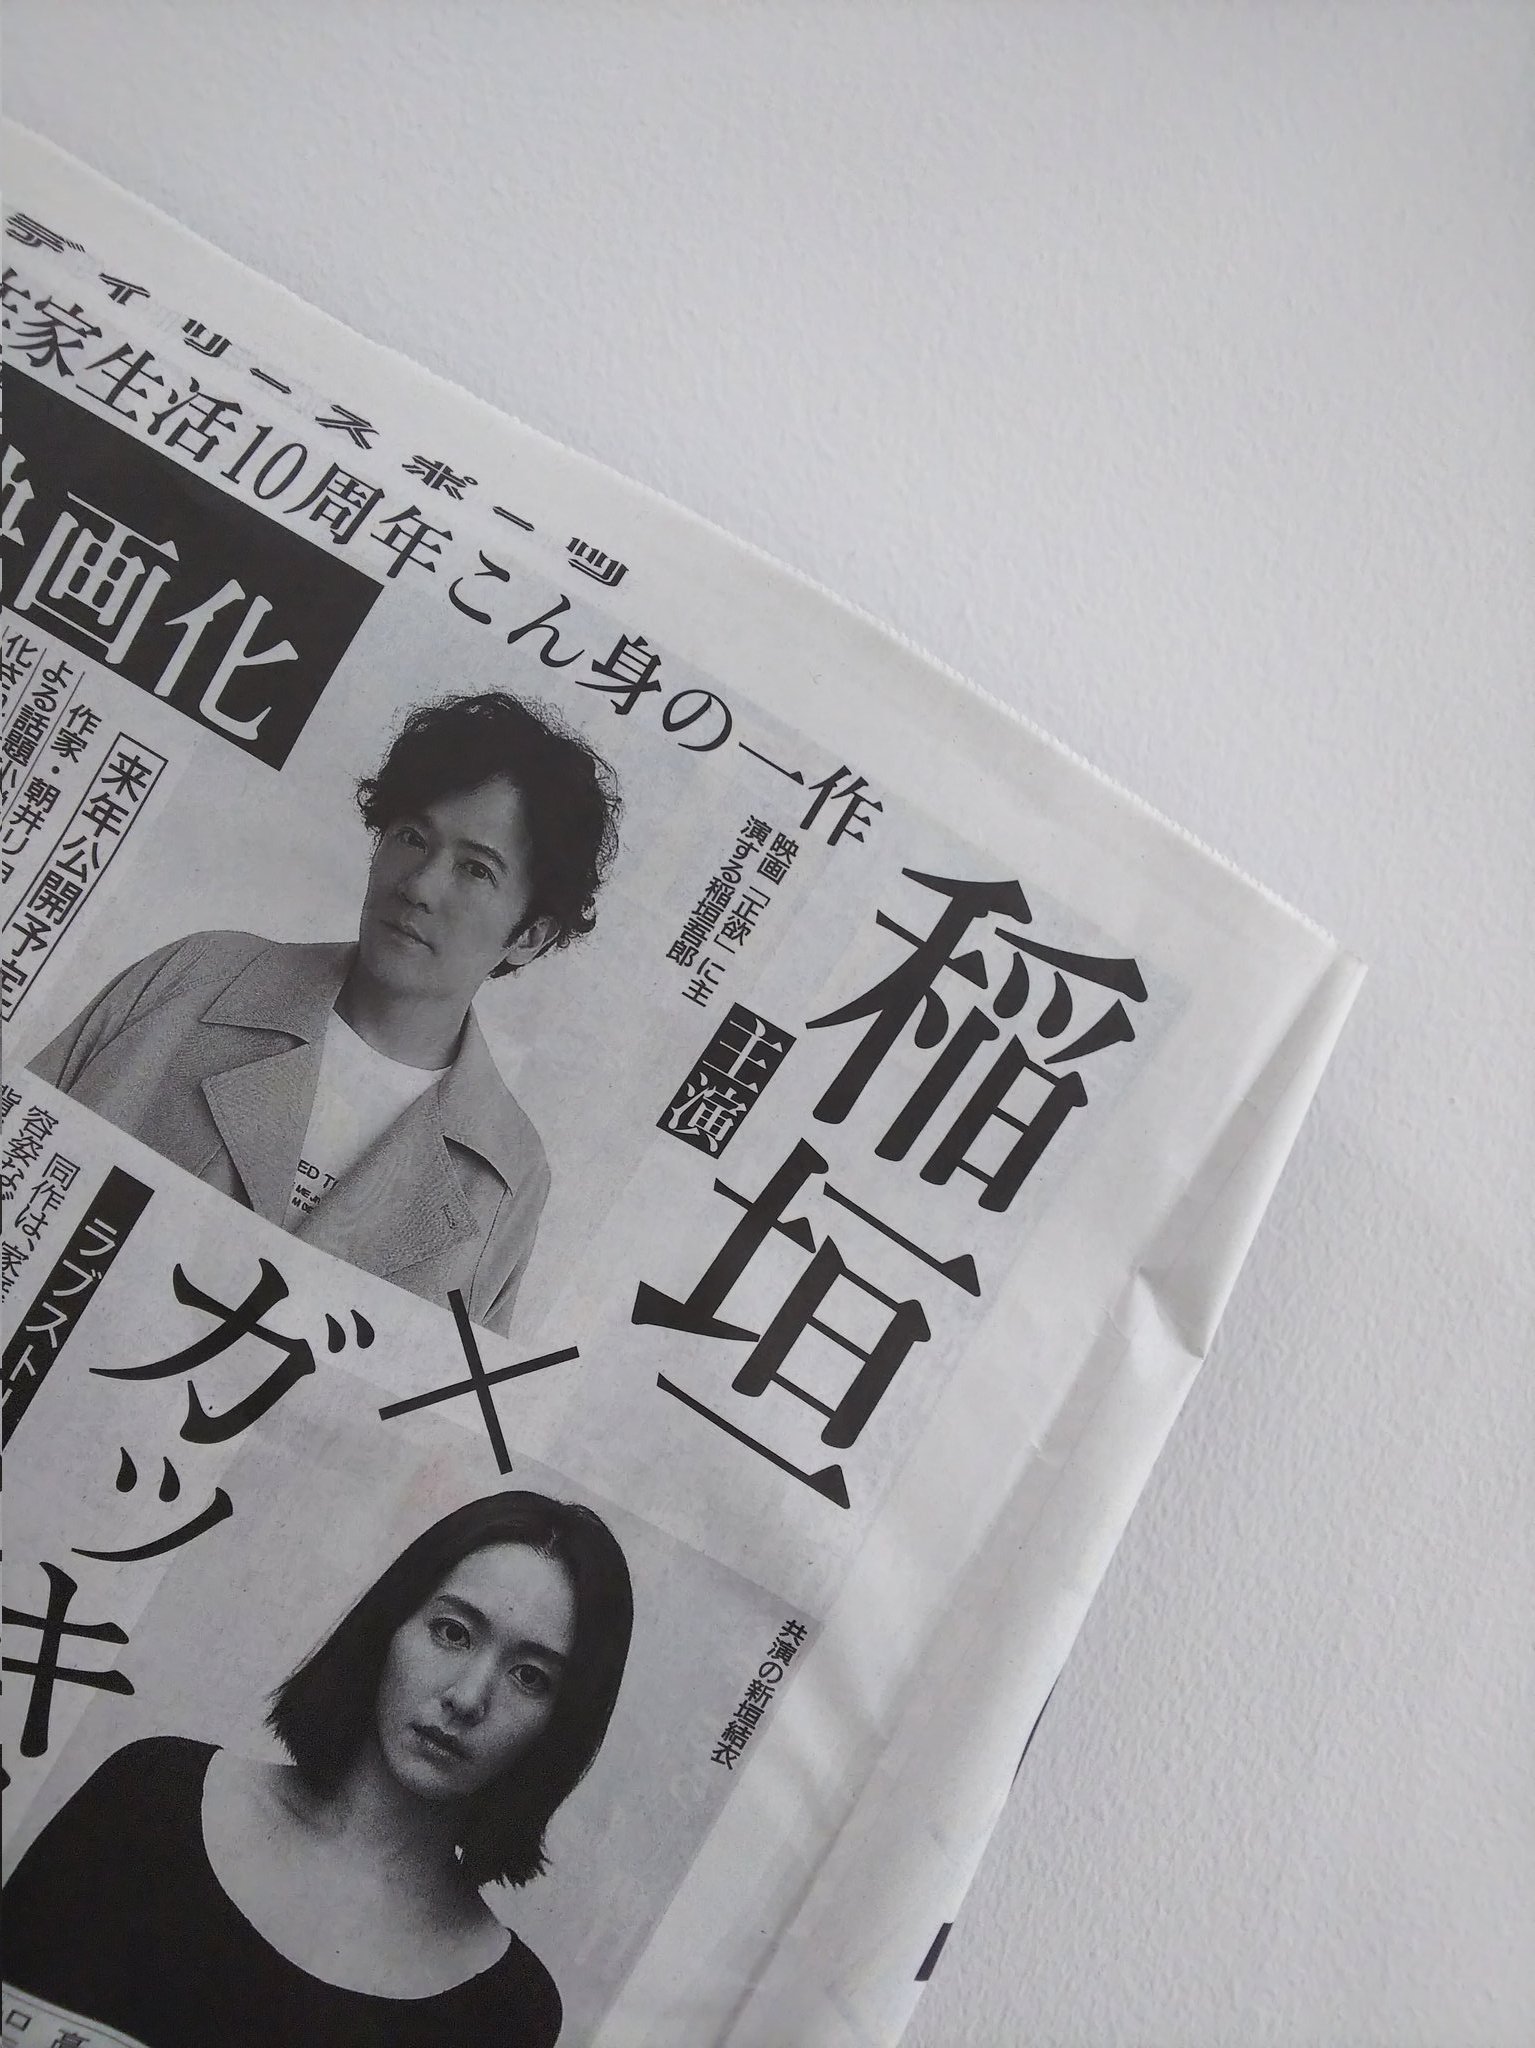 デイリースポーツ
作家生活10周年こん身の一作
稲垣
主演
×
ガッキ
映画化
映画「正欲」に主
演する稲垣吾郎
共演の新垣結衣
来年公開予定
作家・朝井リョ
よる話題
ラブスト
同作は、家
容姿な
ED T
ME